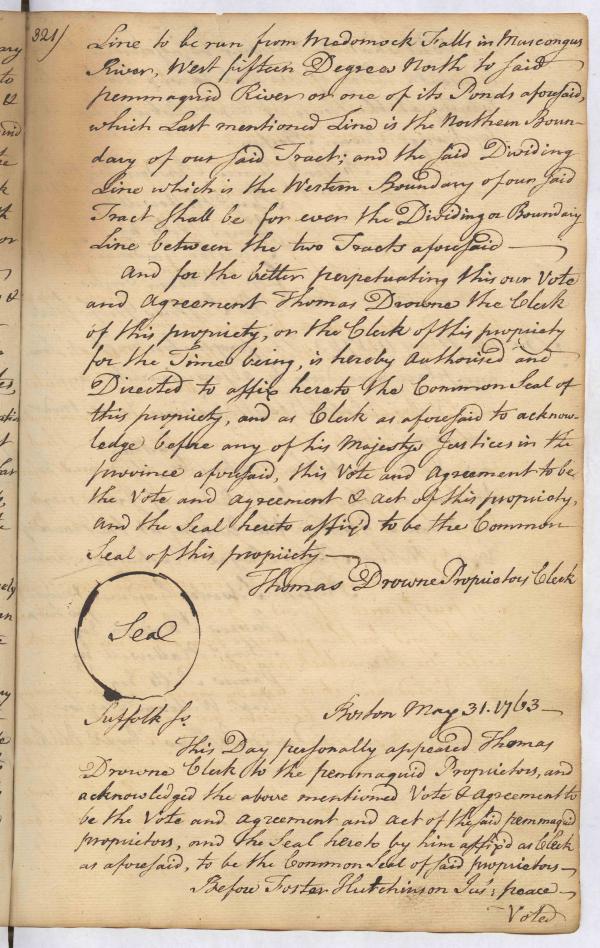 321/
Line to be run from Madomock Falls in Muscongus
River, West fifteen Degrees North to said
pemmaquid River or one of its Ponds aforesaid,
which Last mentioned Line is the Northern Boun-
dary of our said Tract; and the said Dividing
Line which is the Western Boundary of our said
Tract shall be for ever the Dividing or Boundary
Line between the two Tracts aforesaid —
And for the better perpetuating this our Vote
and Agreement Thomas Drowne the Clerk
of this propriety, or the Clerk of this propriety
for the Time being, is hereby Authorised and
Directed to affix hereto the Common Seal of
this propriety, and as Clerk as aforesaid to acknow-
ledge before any of his Majestys Justices in the
province aforesaid, this Vote and Agreement to be
the Vote and Agreement & Act of this propriety,
and the Seal hereto affix'd to be the Common
Seal of this propriety —
Thomas Drowne Proprietors Clerk
Seal
Suffolk Ss. Boston May 31. 1763 —
This Day personally appeared Thomas
Drowne Clerk to the pemmaquid Proprietors, and
acknowledged the above mentioned Vote & Agreement to
be the Vote and Agreement and Act of the said pemmaquid
proprietors, and the Seal hereto by him affix'd as Clerk
as aforesaid, to be the Common Seal of said proprietors —
Before Foster Hutchinson Jus: peace —
Voted